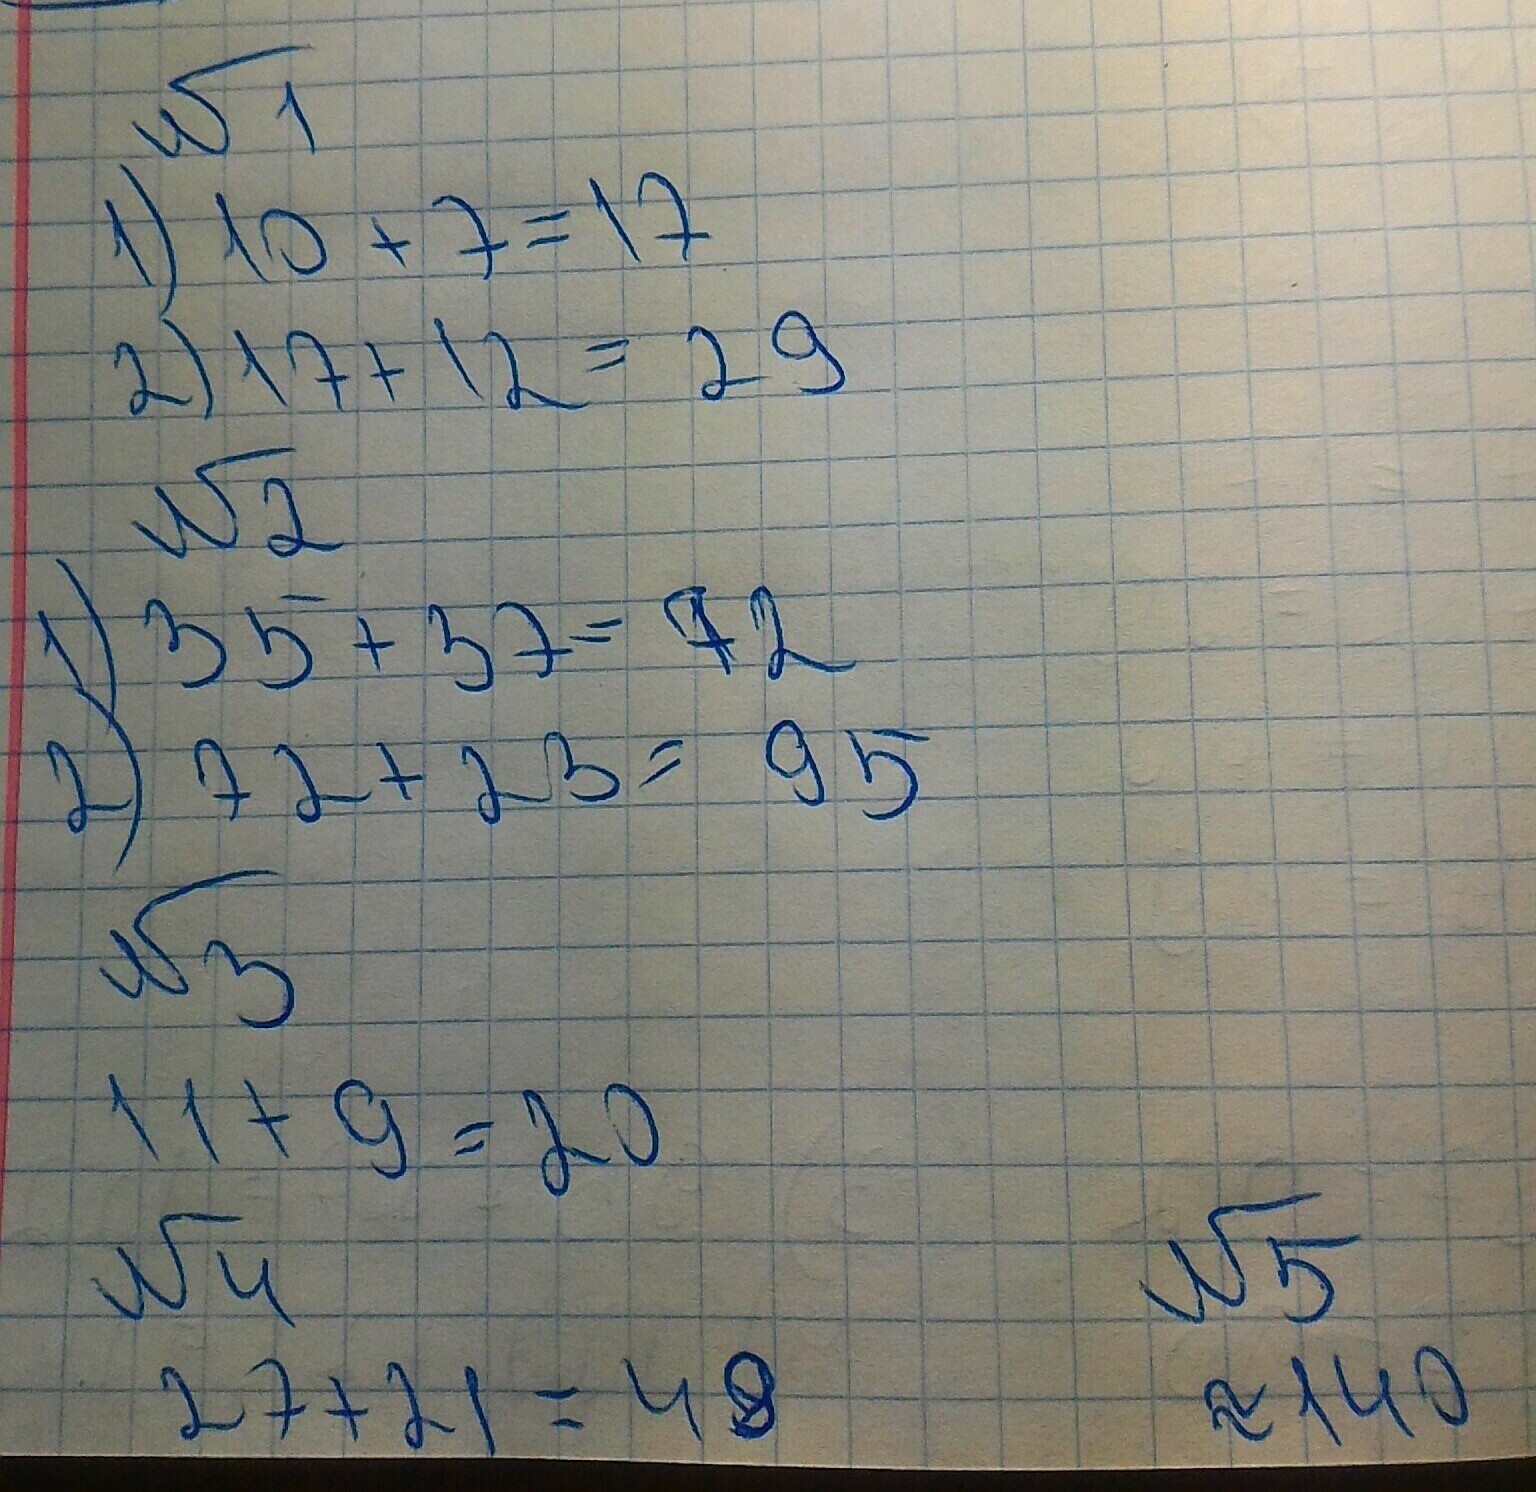 №1
1) 10 + 7 = 17
2) 17 + 12 = 29
№2
1) 35 + 37 = 72
2) 72 + 23 = 95
№3
11 + 9 = 20
№4
27 + 21 = 48
№5
≈ 140